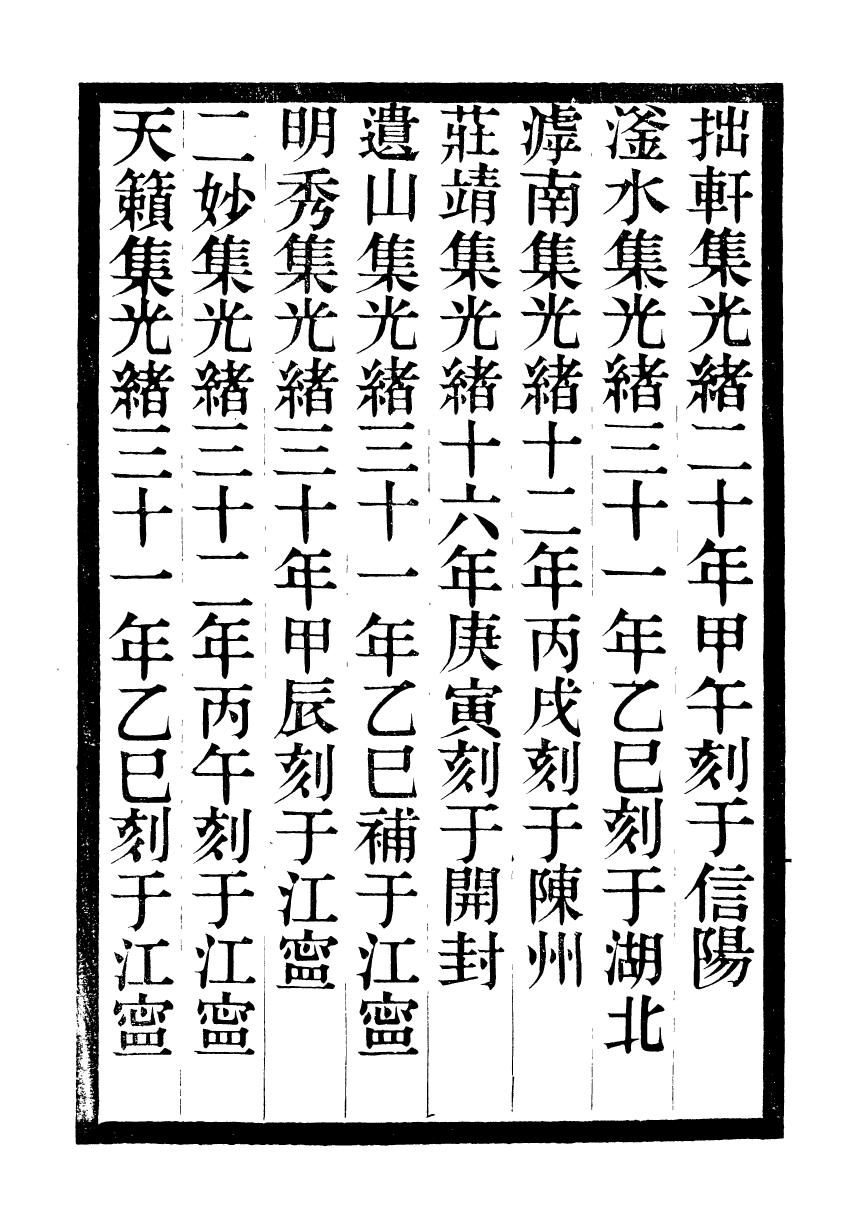 拙軒集光緒二十年甲午刻于信陽
滏水集光緒三十一年乙巳刻于湖北
滹南集光緒十二年丙戌刻于陳州
莊靖集光緒十六年庚寅刻于開封
遺山集光緒三十一年乙巳補于江寍
明秀集光緒三十年甲辰刻于江寍
二妙集光緒三十二年丙午刻于江寍
天籟集光緒三十一年乙巳刻于江寍